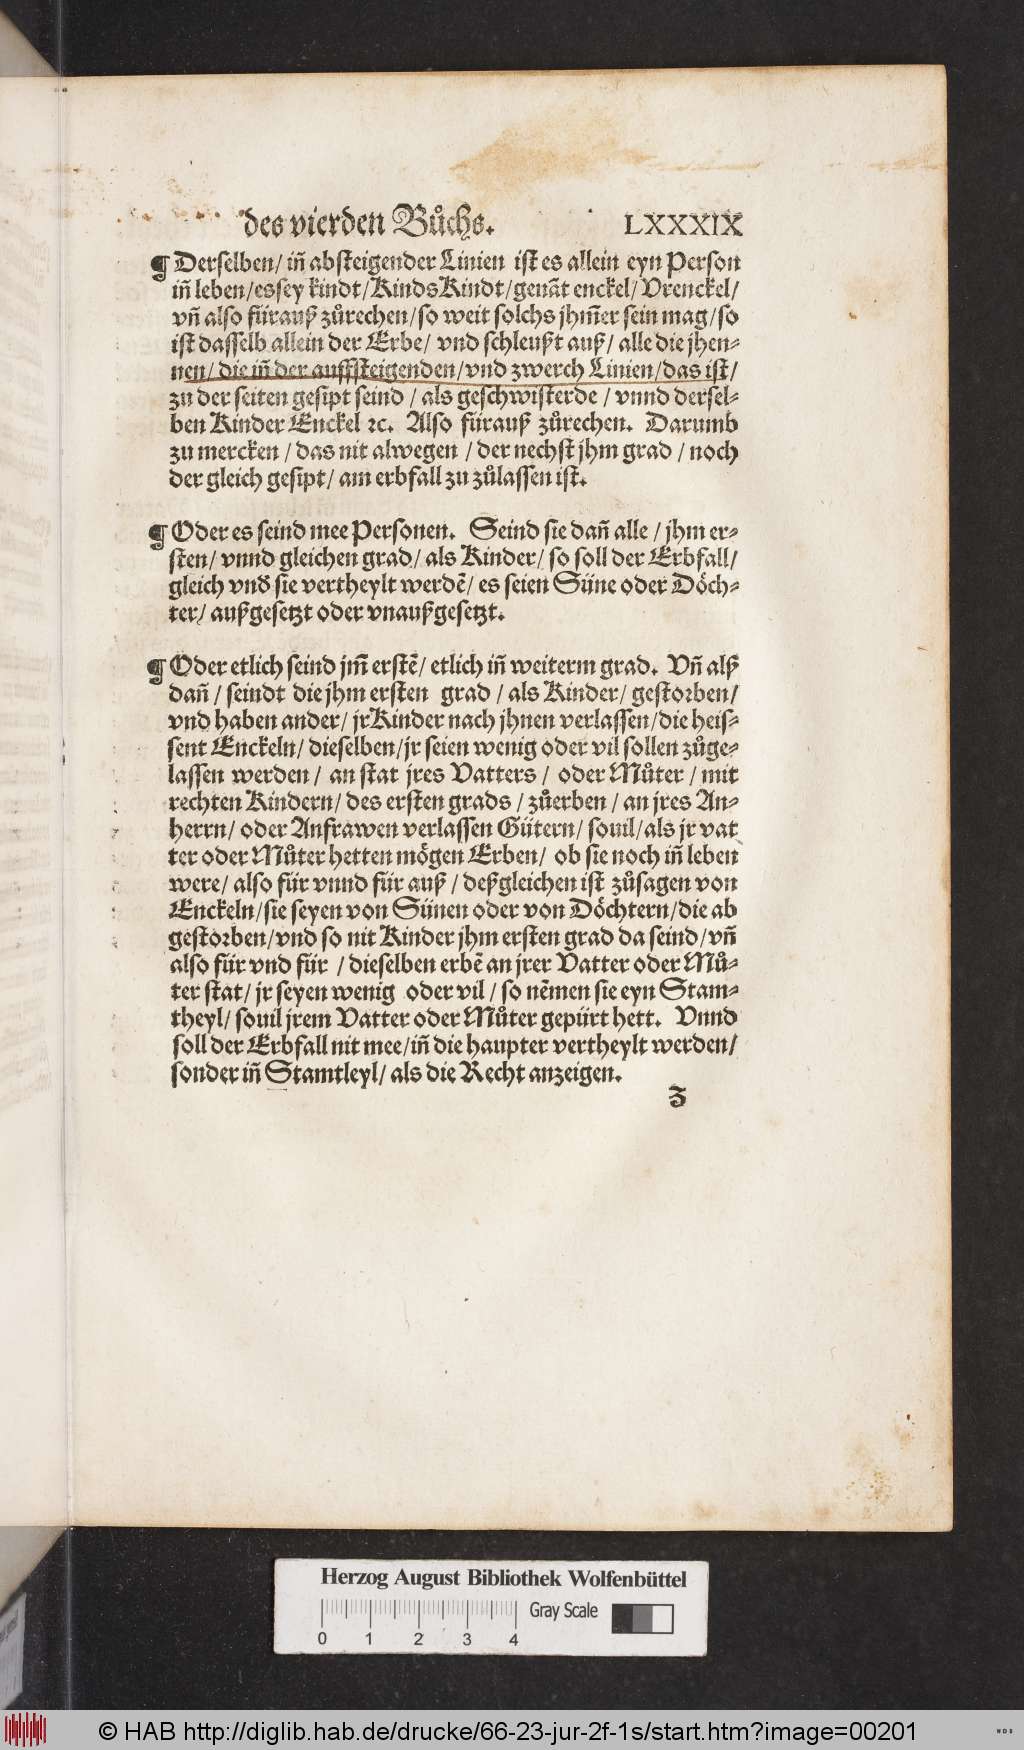 des vierden Bůchs. LXXXIX
¶ Derselben/ iñ absteigender Linien ist es allein eyn Person
iñ leben/es sey kindt/Kinds Kindt/genãt enckel/ Vrenckel/
vñ also fürauß zůrechen/so weit solchs jhm̃er sein mag/so
ist dasselb allein der Erbe/ vnd schleußt auß/ alle die jhen⸗
nen/ die iñ der auffsteigenden/vnd zwerch Linien/das ist/
zu der seiten gesipt seind / als geschwisterde / vnnd dersel⸗
ben Kinder Enckel ⁊c. Also fürauß zůrechen. Darumb
zu mercken / das nit alwegen / der nechst jhm grad / noch
der gleich gesipt/ am erbfall zu zůlassen ist.
¶ Oder es seind mee Personen. Seind sie dañ alle / jhm er⸗
sten/ vnnd gleichen grad/ als Kinder/ so soll der Erbfall/
gleich vnd̃ sie vertheylt werdẽ/ es seien Süne oder Döch⸗
ter/ außgesetzt oder vnaußgesetzt.
¶ Oder etlich seind jm̃ erstẽ/ etlich iñ weiterm grad. Vñ alß
dañ / seindt die jhm ersten grad / als Kinder/ gestorben/
vnd haben ander/ jr Kinder nach jhnen verlassen/die heis⸗
sent Enckeln/ dieselben/jr seien wenig oder vil sollen zůge⸗
lassen werden / an stat jres Vatters / oder Můter / mit
rechten Kindern/ des ersten grads / zůerben / an jres An⸗
herrn/ oder Anfrawen verlassen Gütern/ souil/als jr vat
ter oder Můter hetten mögen Erben/ ob sie noch iñ leben
were/ also für vnnd für auß / deßgleichen ist zůsagen von
Enckeln/sie seyen von Sünen oder von Döchtern/die ab
gestorben/vnd so nit Kinder jhm ersten grad da seind/vñ
also für vnd für / dieselben erbẽ an jrer Vatter oder Mů⸗
ter stat/ jr seyen wenig oder vil / so nẽmen sie eyn Stam⸗
theyl/ souil jrem Vatter oder Můter gepürt hett. Vnnd
soll der Erbfall nit mee/iñ die haupter vertheylt werden/
sonder iñ Stamtleyl/ als die Recht anzeigen.
Z
Herzog August Bibliothek Wolfenbüttel
Gray Scale
0 1 2 3 4
© HAB http://diglib.hab.de/drucke/66-23-jur-2f-1s/start.htm?image=00201